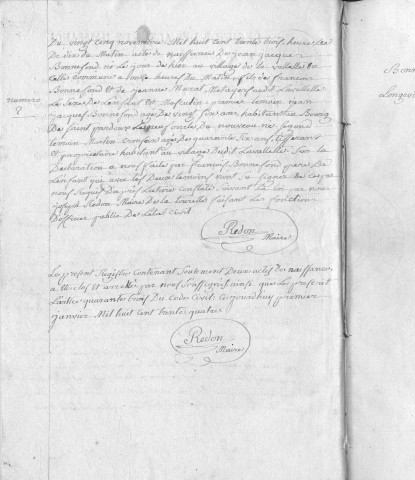 Du vingt cinq novembre Mil huit cent trente trois heure de
dix du Matin acte de naissance de jean jacque
Bonnefond né le jour de hier au village de la valette de
cette commune a onze heures du Matin fils de francois
Bonnefond et de jeanne Marot Metayers audit Lavallette
Le Sexe de Lenfant est Masculin premier temoin jean
numero
jacques Bonnefond age de vingt six ans habitant au Bourg
de Saint pardoux oncle du nouveau ne segond
temoin Martin age de quarante Six ans tisserans
et proprietaire habitant au vilage dudit Lavallette Sur la
Declaration a nous faite par francois Bonnefond pere de
Lenfant que avec les Deux temoins nont su signer de ce par
nous requis Dapres Lecture constaté suivant La loi par nous
joseph Redon Maire de la faisant les fonction
Dofficier public de Letat civil
Redon
Maire
Le present Registre contenant Seulement Deux actes de naissance
a ete clos et arretté par nous Soussigné ainsi que Le prescrit
Lartic quarante trois du Code Civil cejourdhuy premier
janvier Mil huit cent trente quatre
Redon
Maire
Bonn